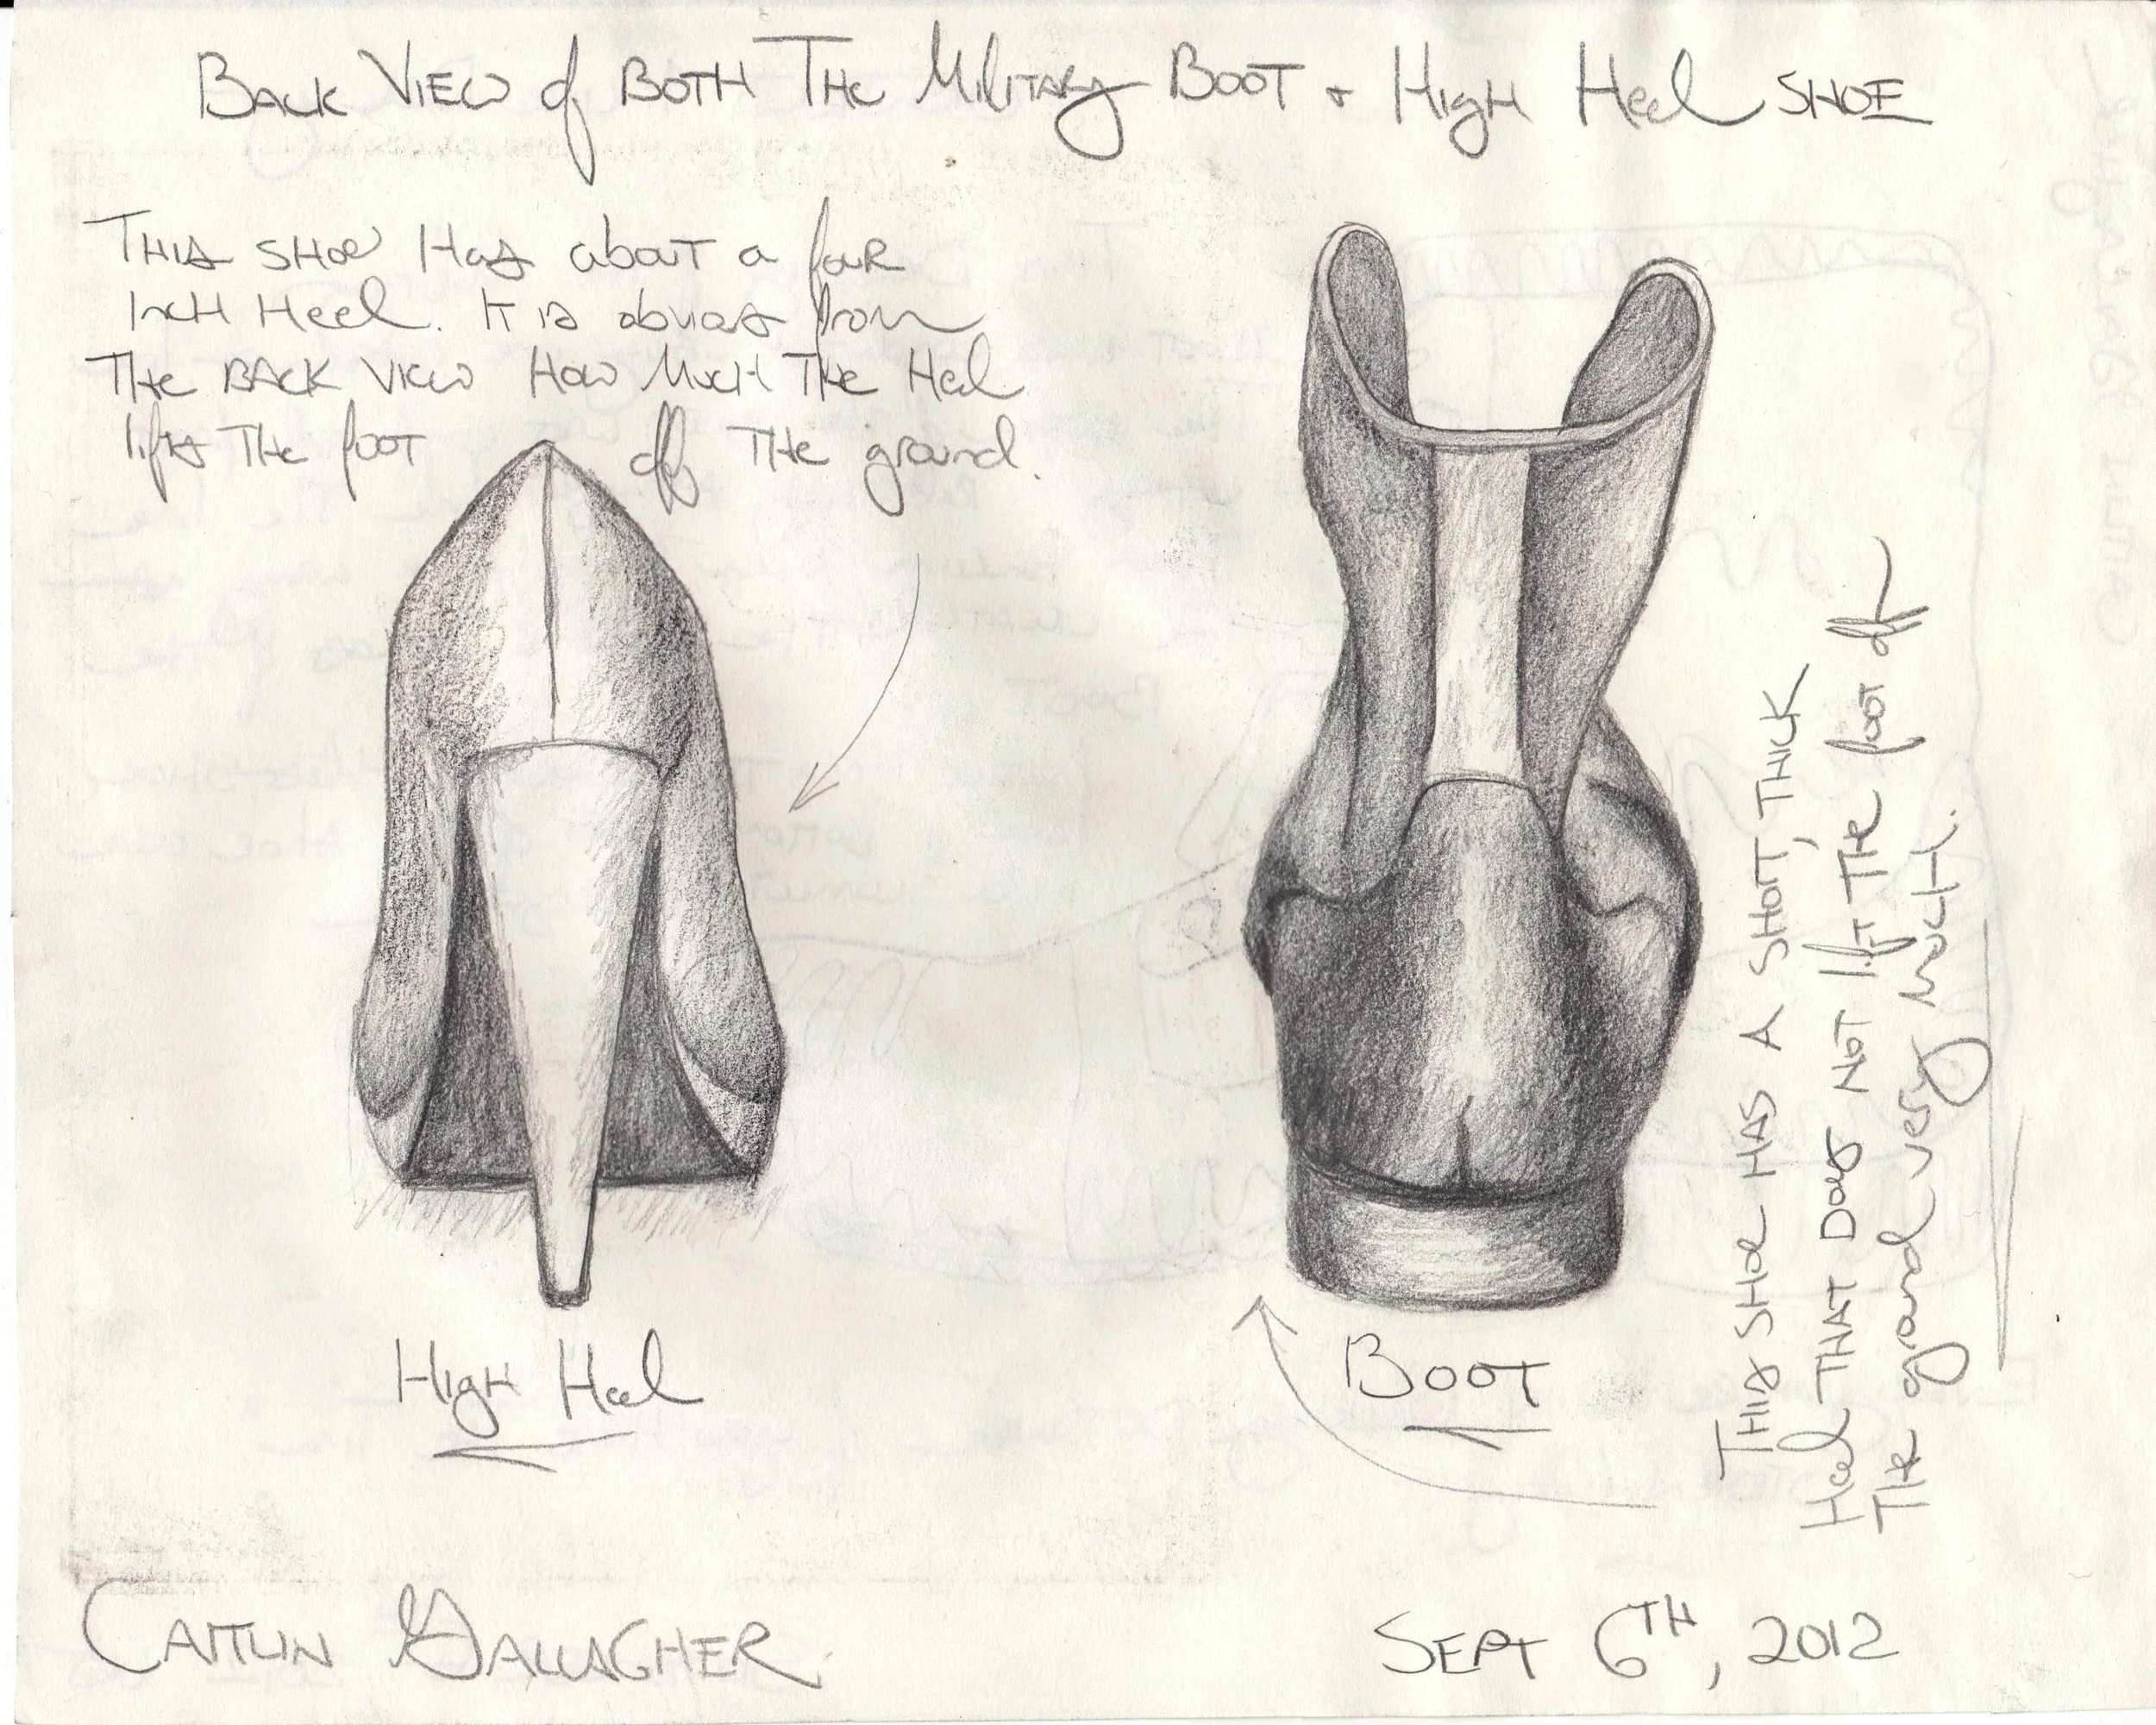 Back View of Both The Military Boot + High Heel Shoe
This shoe Has about a four
Inch Heel. It is obvious from
The Back View How Much The Heel
lifts The foot off The ground.
This shoe Has a short, Thick
Heel That Does Not lift The foot off
The ground very Much.
High Heel
Boot
Caitlin Gallagher
Sept 6TH, 2012